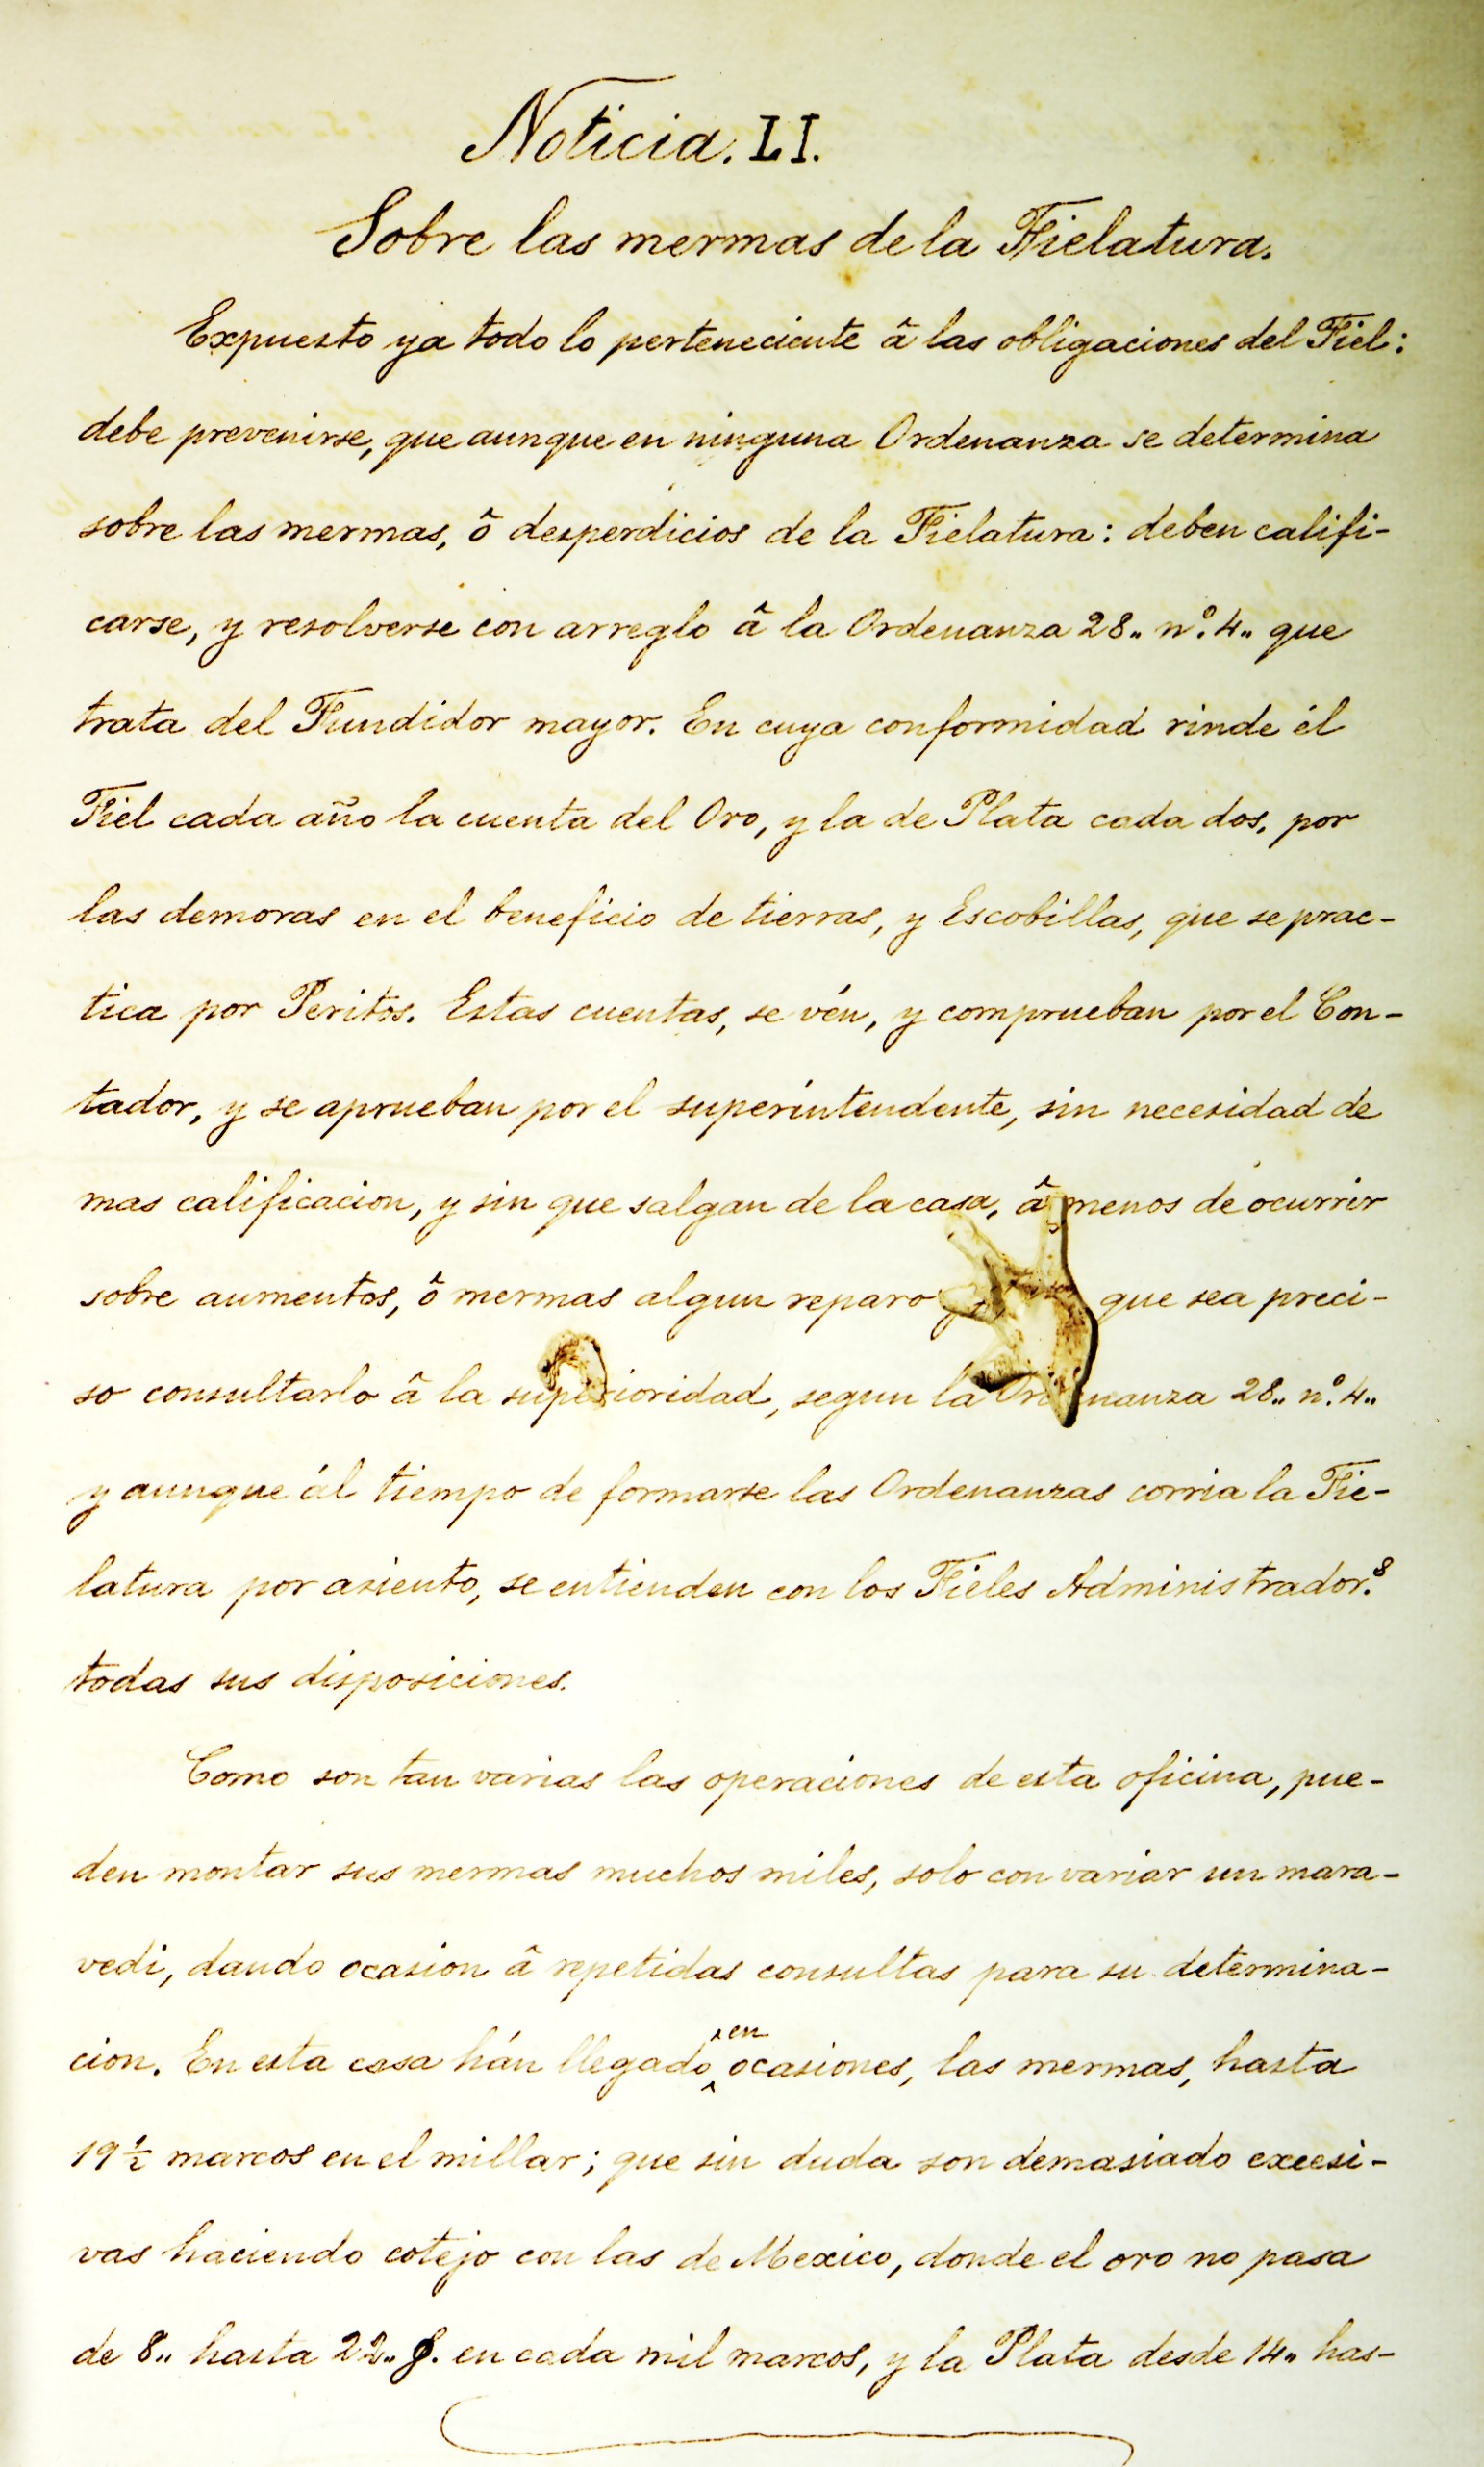 Noticia. LI.
Sobre las mermas de la Fielatura.
Expuesto ya todo lo perteneciente â las obligaciones del Fiel:
debe prevenirse, que aunque en ninguna Ordenanza se determina
sobre las mermas, ô desperdicios de la Fielatura: deben califi-
carse, y resolverse con arreglo â la Ordenanza 28„ nº. 4„ que
trata del Fundidor mayor. En cuya conformidad rinde él
Fiel cada año la cuenta del Oro, y la de Plata cada dos, por
las demoras en el beneficio de tierras, y Escobillas, que se prac-
tica por Peritos. Estas cuentas, se vén, y comprueban por el Con-
tador, y se aprueban por el superintendente, sin necesidad de
mas calificacion, y sin que salgan de la casa, â menos de ocurrir
sobre aumentos, ô mermas algun reparo que sea preci-
so consultarlo â la superioridad, segun la Ordenanza 28„ nº. 4„
y aunque ál tiempo de formarse las Ordenanzas corria la Fie-
latura por asiento, se entienden con los Fieles Administrador.s
todas sus disposiciones.
Como son tan varias las operaciones de esta oficina, pue-
den montar sus mermas muchos miles, solo con variar un mara-
vedi, dando ocasion â repetidas consultas para su determina-
cion. En esta casa hán llegado en ocasiones, las mermas, hasta
19 1/2 marcos en el millar; que sin duda son demasiado excesi-
vas haciendo cotejo con las de Mexico, donde el oro no pasa
de 8„ hasta 22„ en cada mil marcos, y la Plata desde 14„ has-